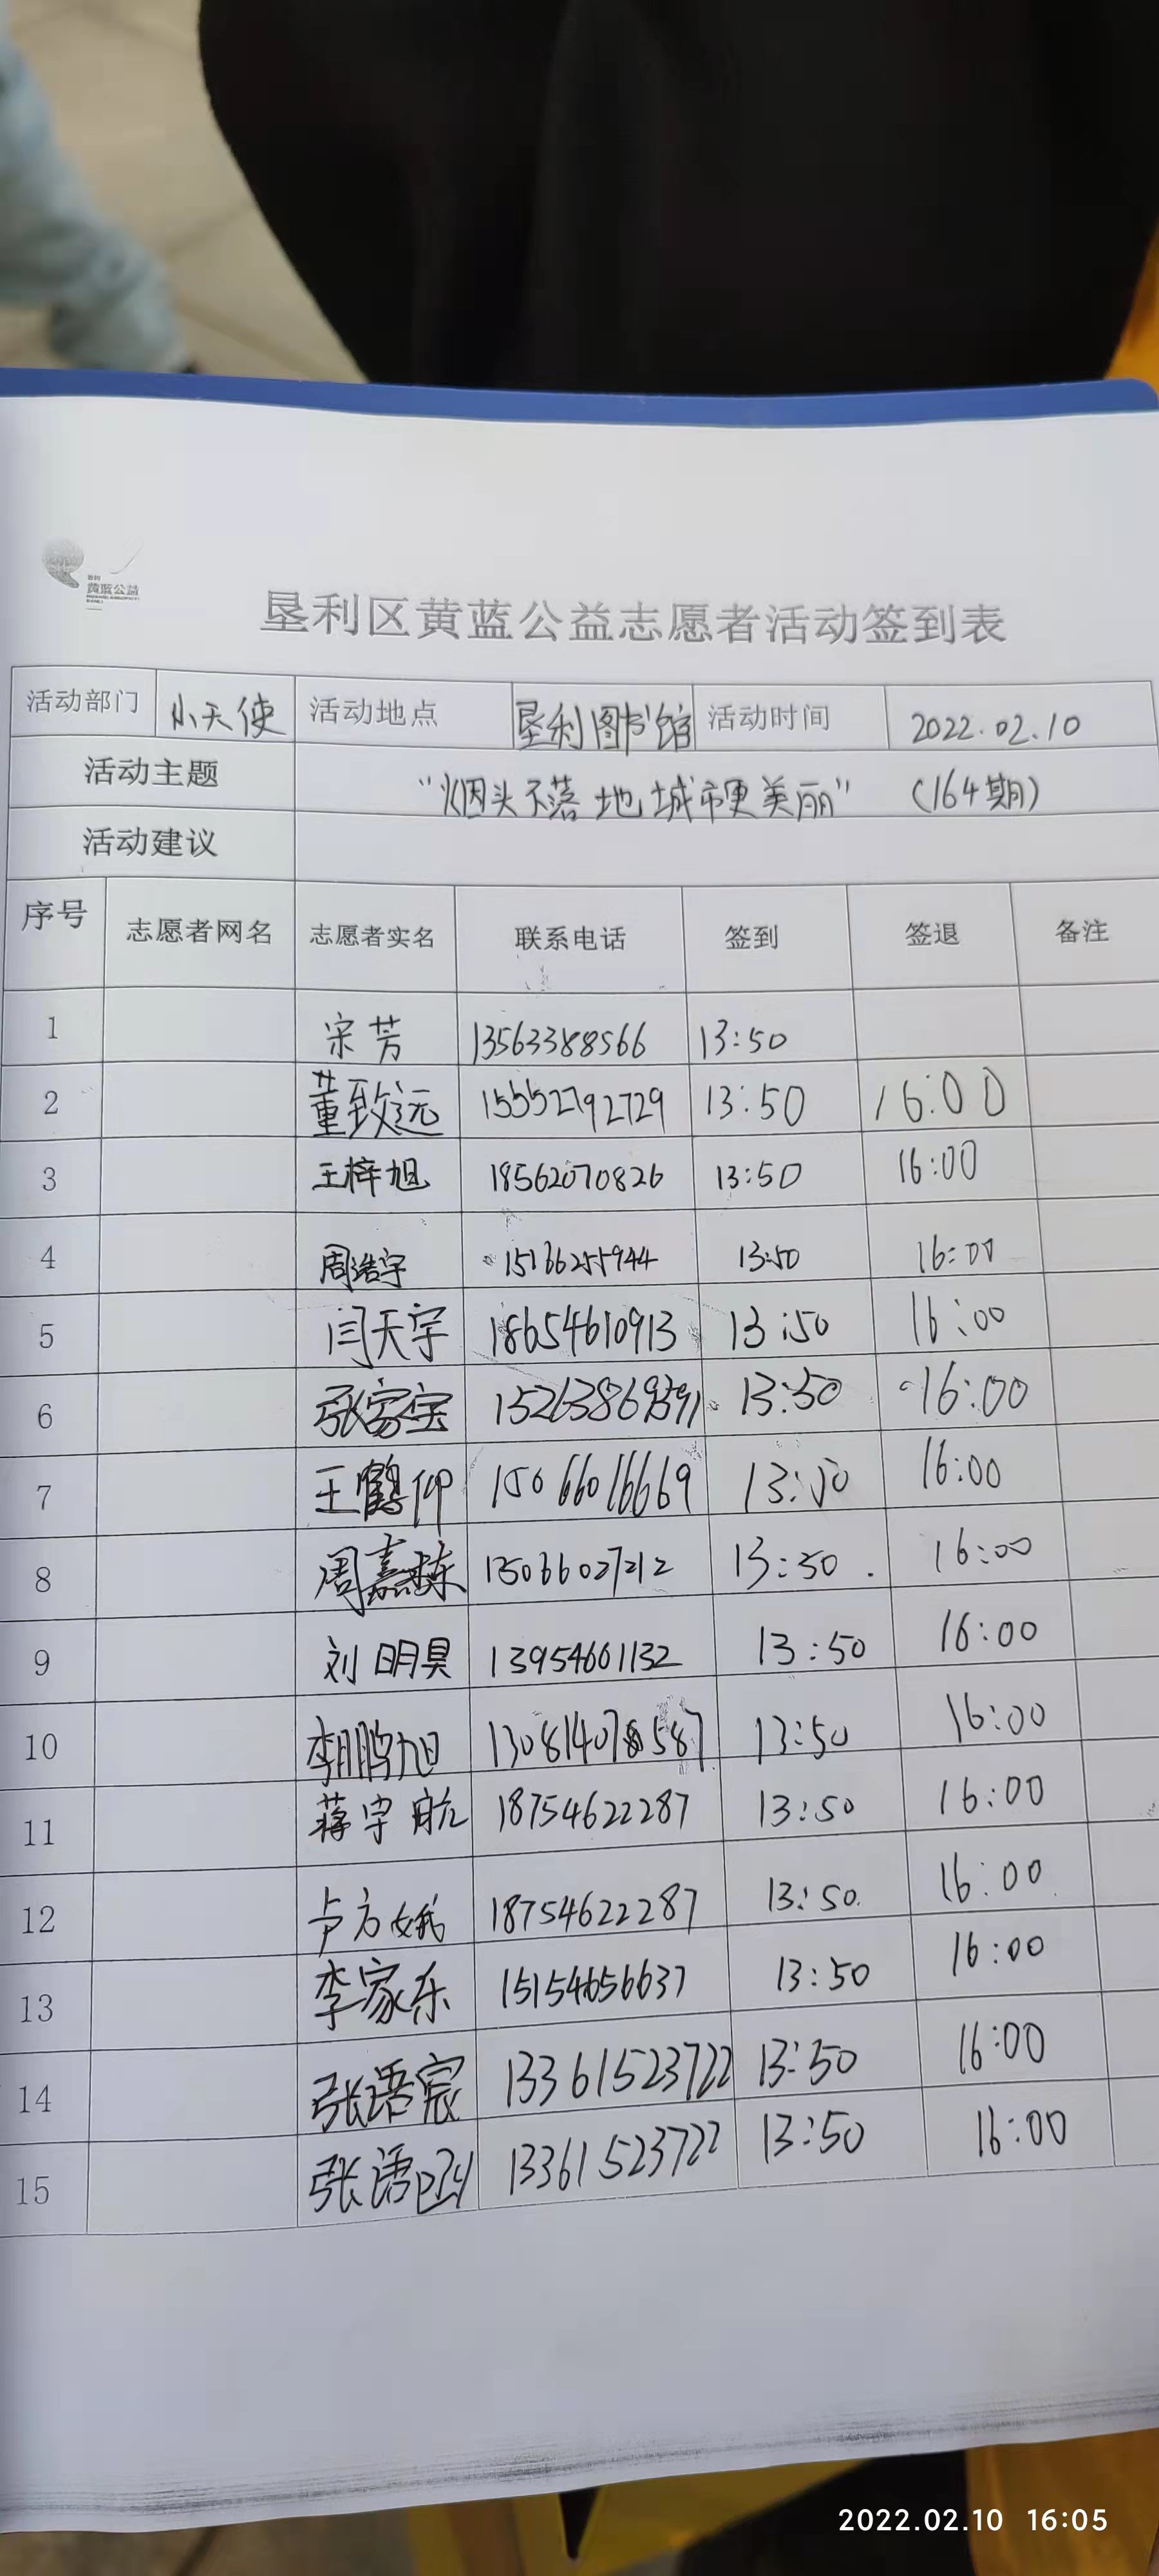 垦利
黄蓝公益
垦利区黄蓝公益志愿者活动签到表
活动部门 小天使 活动地点 垦利图书馆 活动时间 2022.02.10
活动主题 “烟头不落地城市更美丽” (164期)
活动建议
序号 志愿者网名 志愿者实名 联系电话 签到 签退 备注
1 宋芳 13563388566 13:50
2 董致远 15552792729 13:50 16:00
3 王梓旭 18562070826 13:50 16:00
4 周浩宇 15166255944 13:50 16:00
5 闫天宇 18654610913 13:50 16:00
6 张家宝 13:50 16:00
7 王鹤仰 15066016669 13:50 16:00
8 周嘉栋 15066027212 13:50 16:00
9 刘明昊 13954661132 13:50 16:00
10 李鹏旭 13:50 16:00
11 蒋宇航 18754622287 13:50 16:00
12 卢方娥 18754622287 13:50 16:00
13 李家乐 15154656637 13:50 16:00
14 张语宸 13361523722 13:50 16:00
15 张语 13361523722 13:50 16:00
2022.02.10 16:05